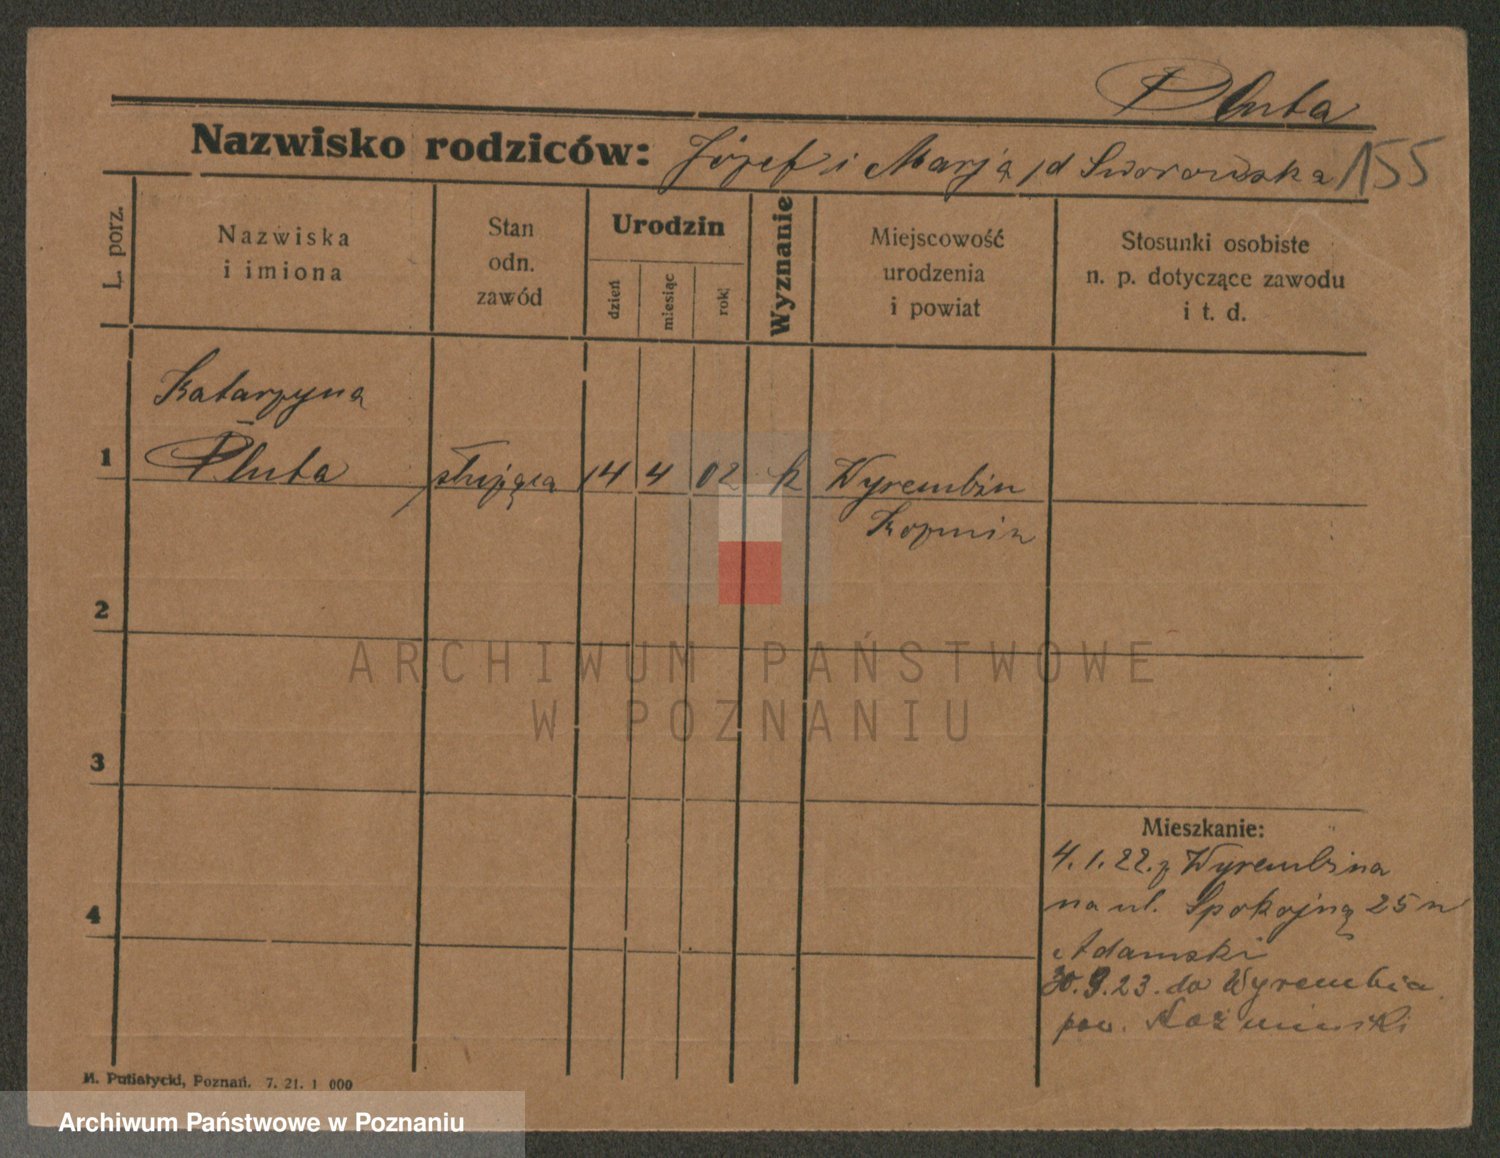 Pluta
Nazwisko rodziców: Józef i Marja /d Sworowska 155
L. porz.
Nazwiska
i imiona
Stan
odn.
zawód
Urodzin
dzień
miesiąc
rok
Wyznanie
Miejscowość
urodzenia
i powiat
Stosunki osobiste
n. p. dotyczące zawodu
i t. d.
Katarzyna
1 Pluta służąca 14 4 02 k Wyrembin
Kozmin
2
3
4
ARCHIWUM PAŃSTWOWE
W POZNANIU
Mieszkanie:
4.1.22. z Wyrembina
na ul. Spokojną 25 u
Adamski
30.9.23. do Wyrembia
pow. Koźmiński
M. Putiatycki, Poznań. 7. 21. 1 000
Archiwum Państwowe w Poznaniu